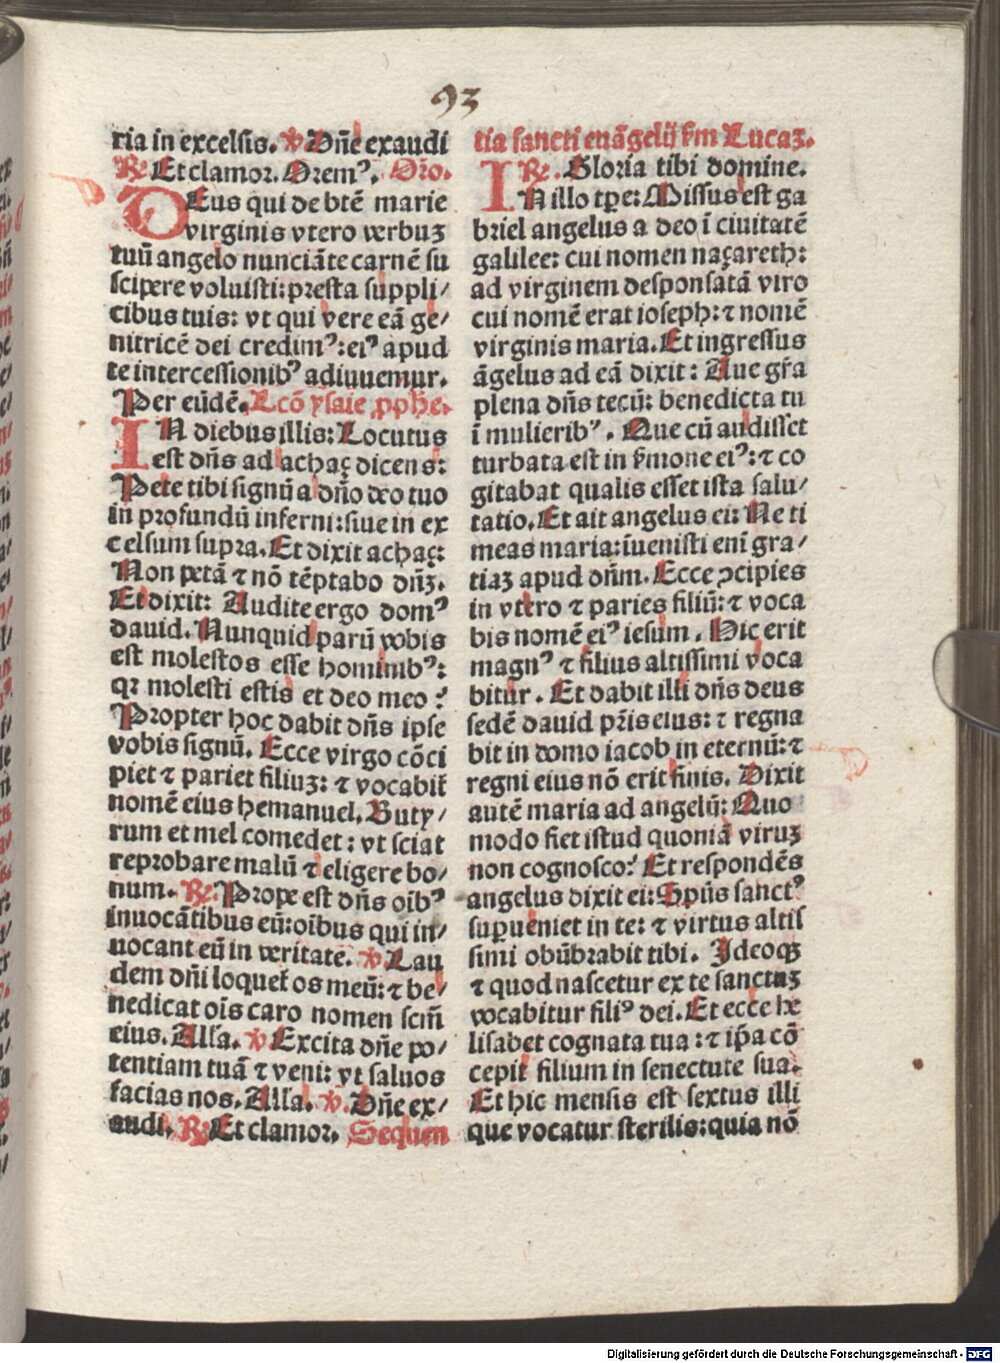 93
ria in excelsis. ℣ Dn̄e exaudi
℟ Et clamor. Oremꝰ. Or̄o.
DEus qui de btē marie
virginis vtero verbuꝫ
tuū angelo nunciāte carnē su
scipere voluisti: presta suppli/
cibus tuis: vt qui vere eā ge/
nitricē dei credimꝰ: eiꝰ apud
te intercessionibꝰ adiuuemur.
Per eūdē. Lcō ysaie ꝓphe.
IN diebus illis: Locutus
est dn̄s ad achaç dicens:
Pete tibi signū a dn̄o deo tuo
in profundū inferni: siue in ex
celsum supra. Et dixit achaç:
Non petā ⁊ nō tēptabo dn̄ꝫ.
Et dixit: Audite ergo domꝰ
dauid. Nunquid parū vobis
est molestos esse hominibꝰ:
qꝛ molesti estis et deo meo?
Propter hoc dabit dn̄s ipse
vobis signū. Ecce virgo cōci
piet ⁊ pariet filiuꝫ: ⁊ vocabit̄
nomē eius hemanuel. Buty/
rum et mel comedet: vt sciat
reprobare malū ⁊ eligere bo/
num. ℟. Prope est dn̄s oībꝰ
inuocātibus eū: oībus qui in/
uocant eū in veritate. ℣ Lau
dem dn̄i loquet̄ os meū: ⁊ be/
nedicat oīs caro nomen scm̄
eius. Alla. ℣ Excita dn̄e po/
tentiam tuā ⁊ veni: vt saluos
facias nos. Alla. ℣. Dn̄e ex/
audi. ℟ Et clamor. Sequen
tia sancti euāgelij s̄m Lucaꝫ.
℟. Gloria tibi domine.
IN illo tꝑe: Missus est ga
briel angelus a deo ī ciuitatē
galilee: cui nomen naçareth:
ad virginem desponsatā viro
cui nomē erat ioseph: ⁊ nomē
virginis maria. Et ingressus
āgelus ad eā dixit: Aue gr̄a
plena dn̄s tecū: benedicta tu
ī mulieribꝰ. Que cū audisset
turbata est in s̄mone eiꝰ: ⁊ co
gitabat qualis esset ista salu/
tatio. Et ait angelus ei: Ne ti
meas maria: īuenisti enī gra/
tiaꝫ apud dn̄m. Ecce ꝯcipies
in vtero ⁊ paries filiū: ⁊ voca
bis nomē eiꝰ iesum. Hic erit
magnꝰ ⁊ filius altissimi voca
bitur. Et dabit illi dn̄s deus
sedē dauid pr̄is eius: ⁊ regna
bit in domo iacob in eternū: ⁊
regni eius nō erit finis. Dixit
autē maria ad angelū: Quo
modo fiet istud quoniā viruꝫ
non cognosco? Et respondēs
angelus dixit ei: Spūs sanctꝰ
supueniet in te: ⁊ virtus altis
simi obūbrabit tibi. Ideoqꝫ
⁊ quod nascetur ex te sanctuꝫ
vocabitur filiꝰ dei. Et ecce he
lisabet cognata tua: ⁊ ip̄a cō
cepit filium in senectute sua.
Et hic mensis est sextus illi
que vocatur sterilis: quia nō
Digitalisierung gefördert durch die Deutsche Forschungsgemeinschaft - DFG